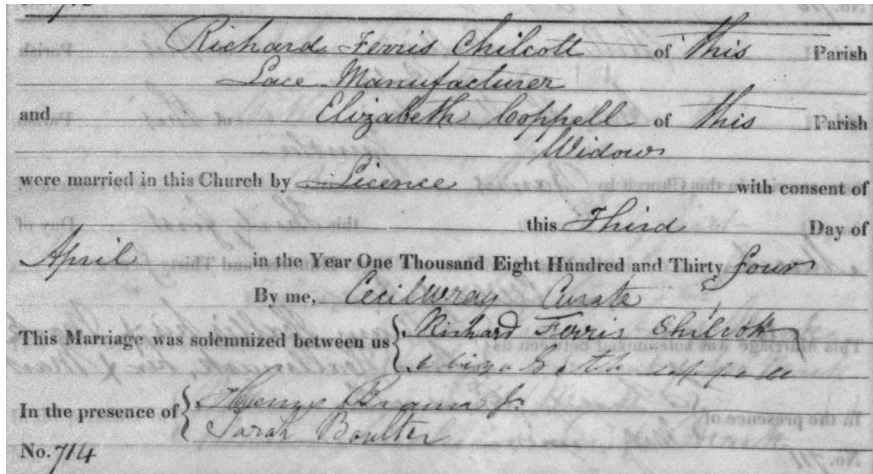 Richard Ferris Chilcott of this Parish
Lace Manufacturer
and Elizabeth Coppell of this Parish
Widow
were married in this Church by Licence with consent of
this Third Day of
April in the Year One Thousand Eight Hundred and Thirty four
By me, Cecil Wray Curate
This Marriage was solemnized between us Richard Ferris Chilcott
Elizabeth Coppell
In the presence of Henry Jr
Sarah Boulter
No. 714